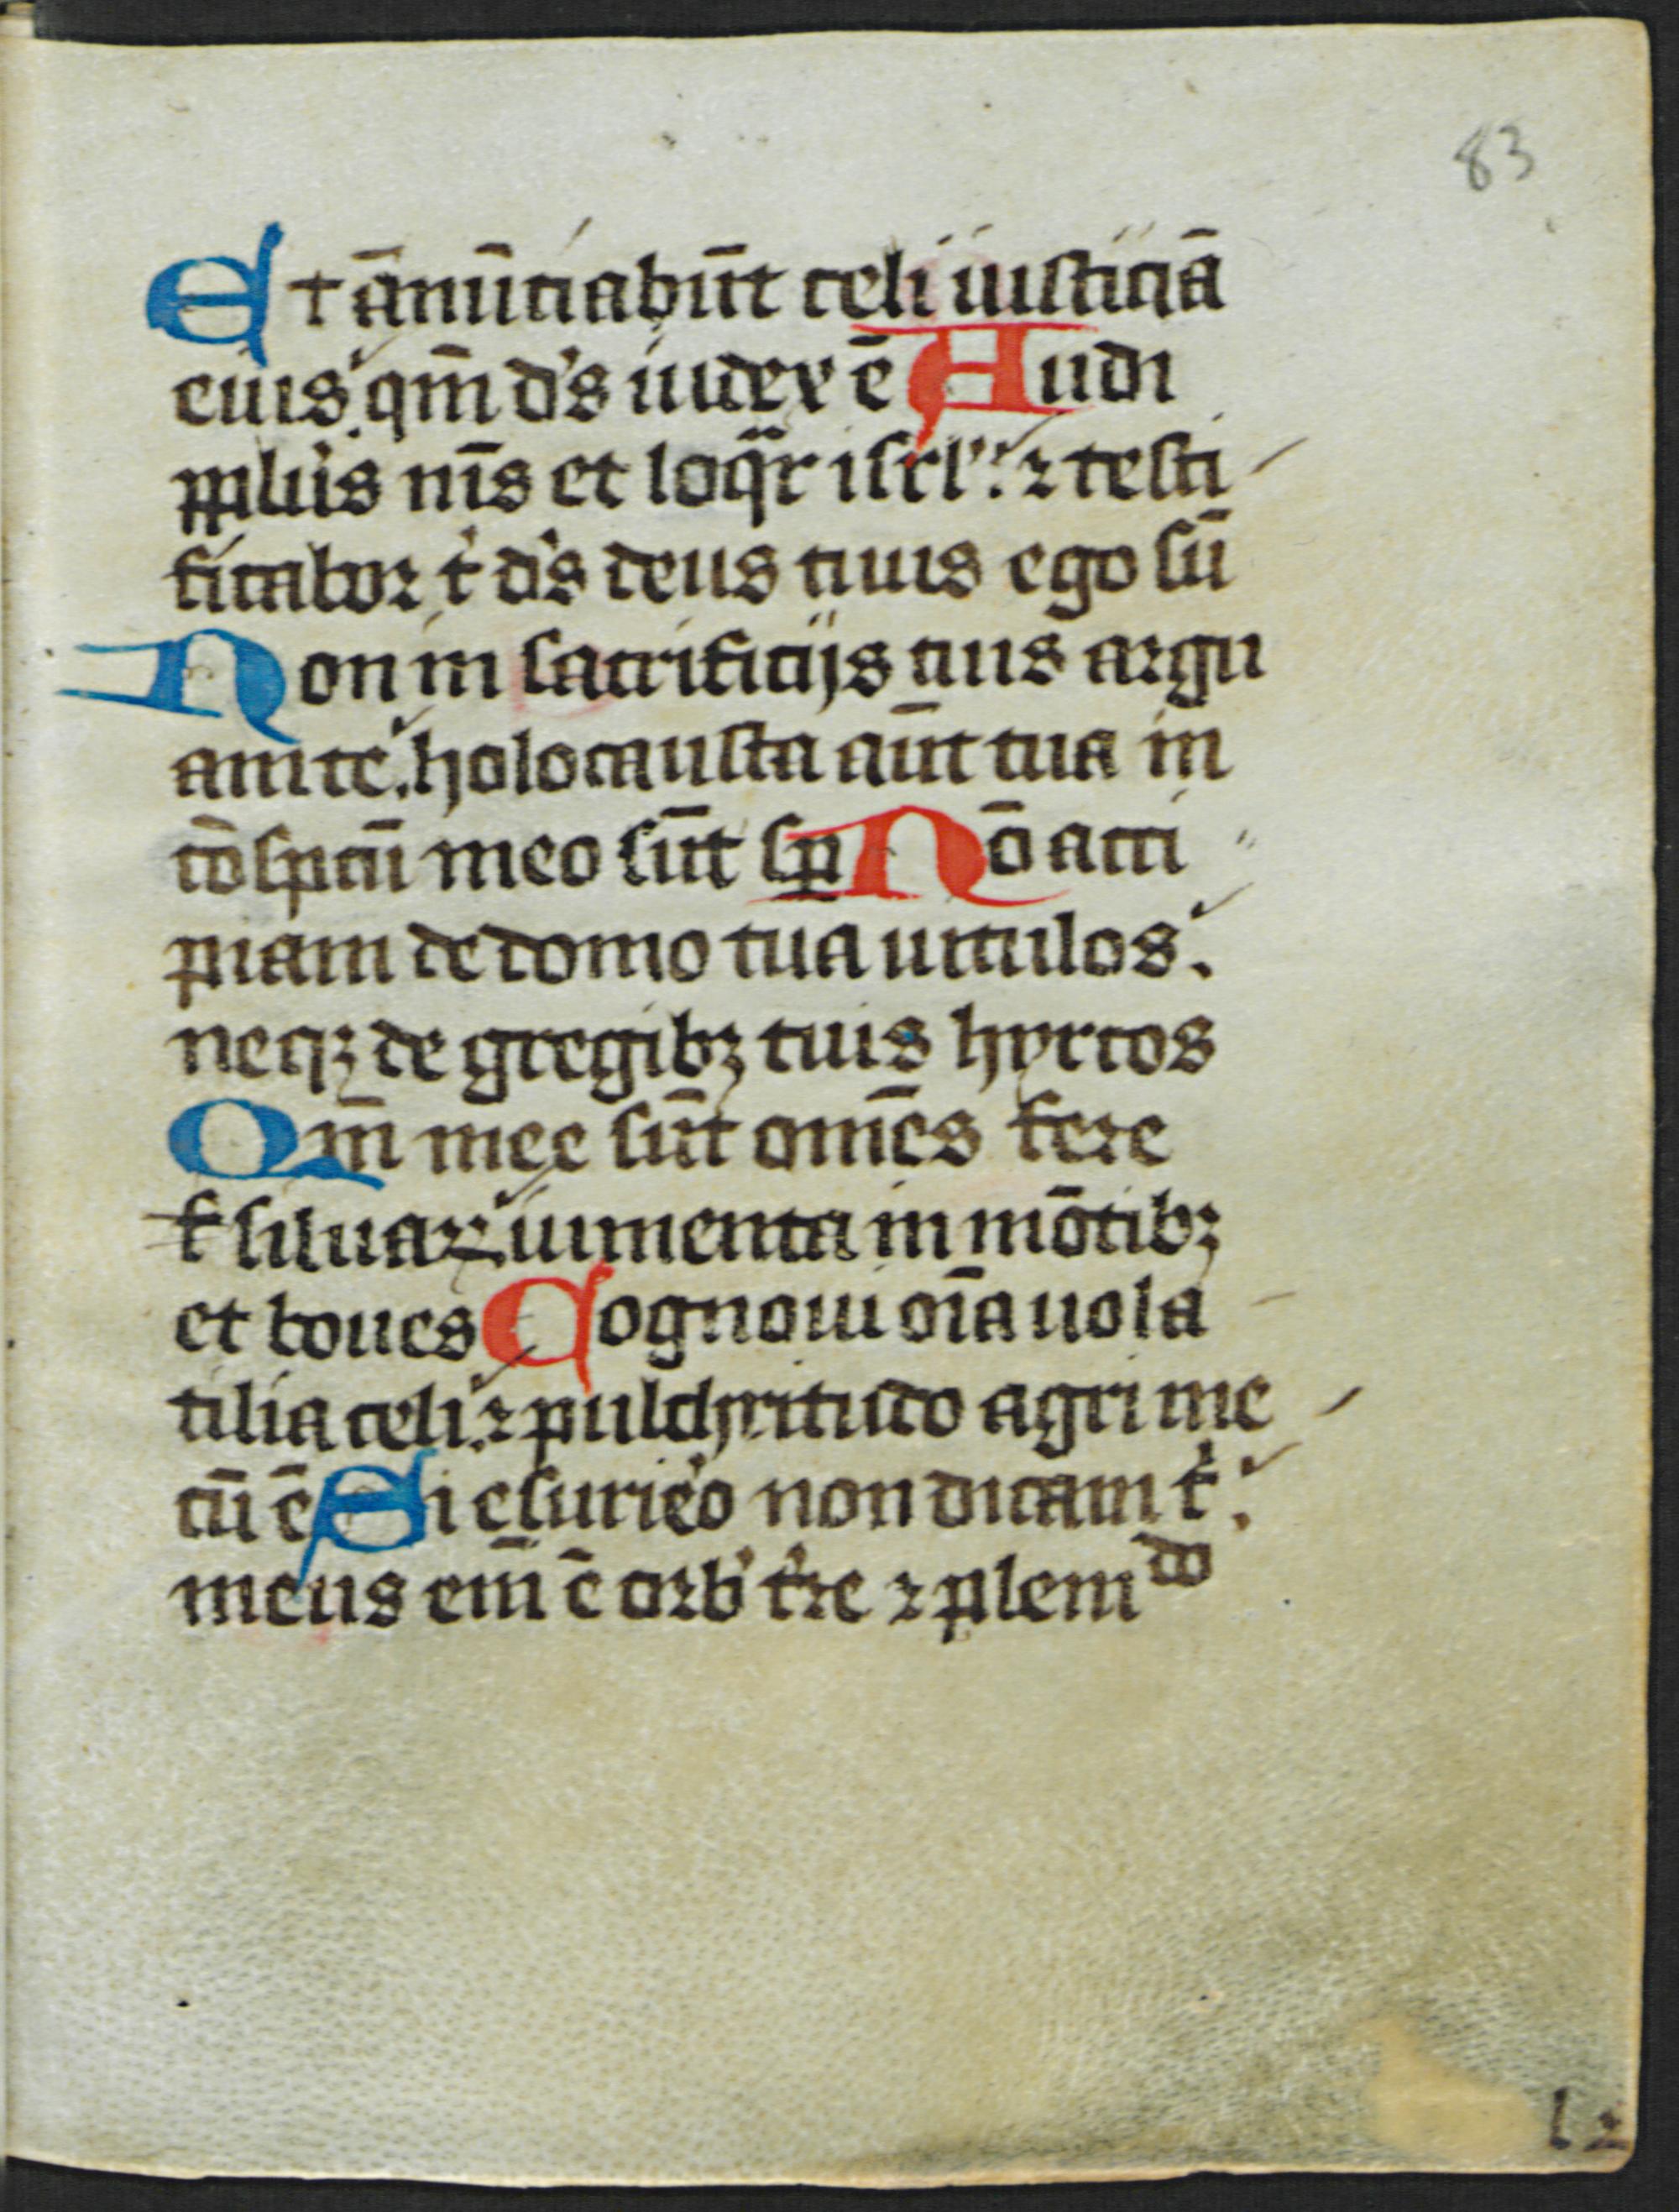 83
Et ānūciabūt celi iusticiā
eius qm̄ d's iudex ē Audi
pplus ms̄ et loqr isrl': ⁊ testi
ficabor t' d's deus tuus ego sū
Non in sacrificijs tuis argu
am te. holocausta aūt tua in
cōspcū meo sūt sp̄ Nō acci
piam de domo tua uitulos.
neqꝫ de gregibꝫ tuis hyrcos
Qm̄ mee sūt om̄es fere
siluaꝝ iumenta in mōtibꝫ
et boues Cognoui oīa uola
tilia celi. ⁊ pulchritudo agri me
cū ē Si esuriero non dicam t':
meus em̄ ē orb' t're ⁊ plenido
l 2